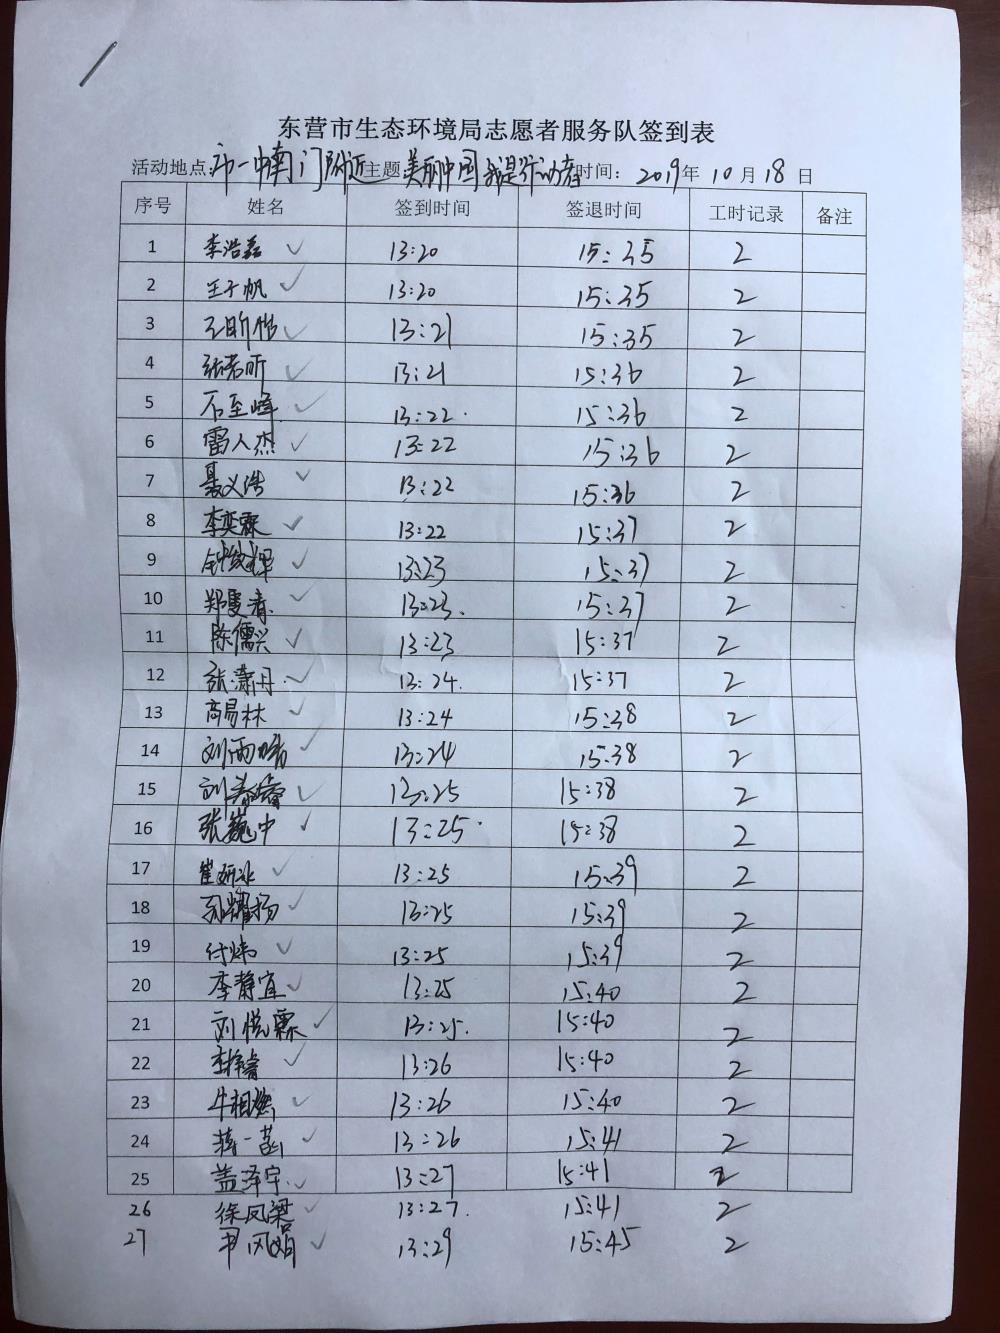 东营市生态环境局志愿者服务队签到表
活动地点:市一中南门附近 主题 美丽中国 我是行动者 时间: 2019年10月18日
序号 姓名 签到时间 签退时间 工时记录 备注
1 李浩磊 ✓ 13:20 15:35 2
2 王子帆 ✓ 13:20 15:35 2
3 王昕怡 ✓ 13:21 15:35 2
4 张若昕 ✓ 13:21 15:36 2
5 石至峰 ✓ 13:22 15:36 2
6 雷人杰 ✓ 13:22 15:36 2
7 聂义浩 ✓ 13:22 15:36 2
8 李奕霖 ✓ 13:22 15:37 2
9 钟 辉 ✓ 13:23 15:37 2
10 郑夏青 ✓ 13:23 15:37 2
11 陈儒兴 ✓ 13:23 15:37 2
12 张潇丹 ✓ 13:24 15:37 2
13 商易林 ✓ 13:24 15:38 2
14 刘雨晴 ✓ 13:24 15:38 2
15 刘 ✓ 13:25 15:38 2
16 张巍中 ✓ 13:25 15:38 2
17 崔妍冰 ✓ 13:25 15:39 2
18 孙耀扬 ✓ 13:25 15:39 2
19 付炜 ✓ 13:25 15:39 2
20 李静宜 ✓ 13:25 15:40 2
21 刘悦霖 ✓ 13:25 15:40 2
22 李梓睿 ✓ 13:26 15:40 2
23 牛相燃 ✓ 13:26 15:40 2
24 蒋一菡 ✓ 13:26 15:41 2
25 盖泽宇 ✓ 13:27 15:41 2
26 徐凤梁 ✓ 13:27 15:41 2
27 尹风娟 ✓ 13:29 15:45 2